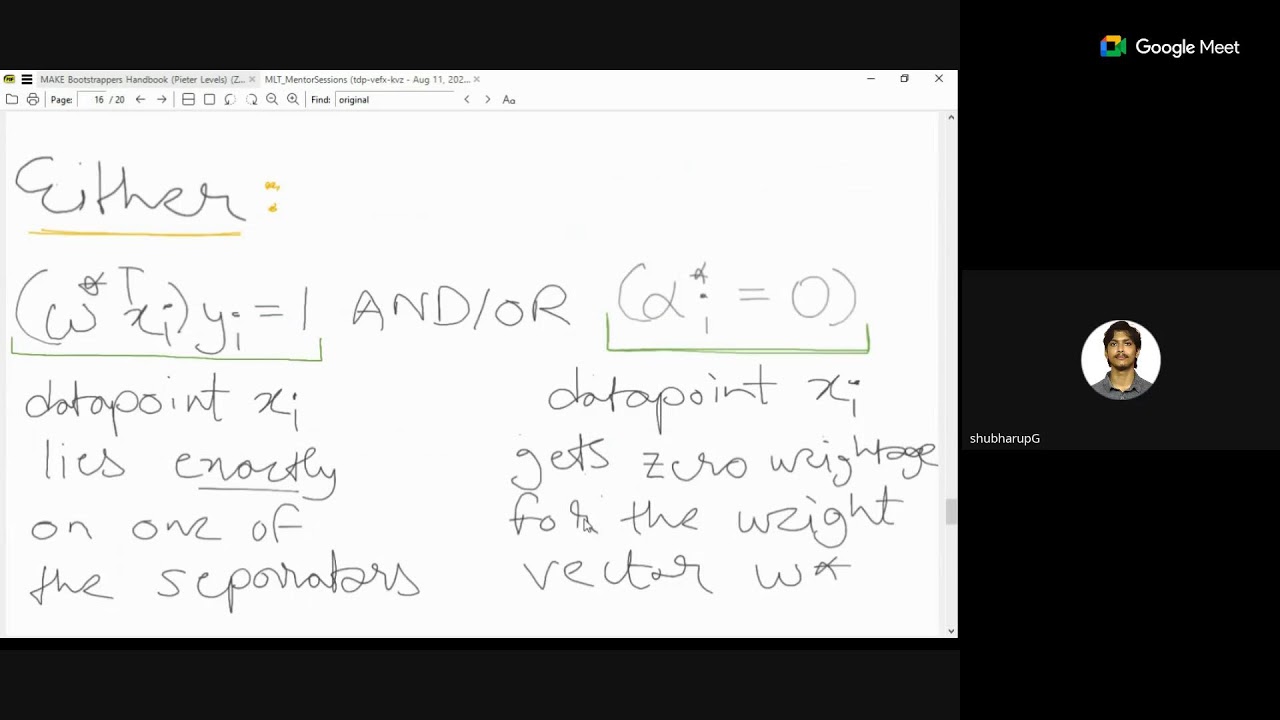 Google Meet
MAKE Bootstrappers Handbook (Pieter Levels) (Z...
MLT_MentorSessions (tdp-vefx-kvz - Aug 11, 202...
Page: 16 / 20 Find: original Aa
Either :
(w*ᵀxᵢ)yᵢ = 1 AND/OR (αᵢ* = 0)
datapoint xᵢ datapoint xᵢ
lies exactly gets zero weightage
on one of for the weight
the separators vector w*
shubharupG